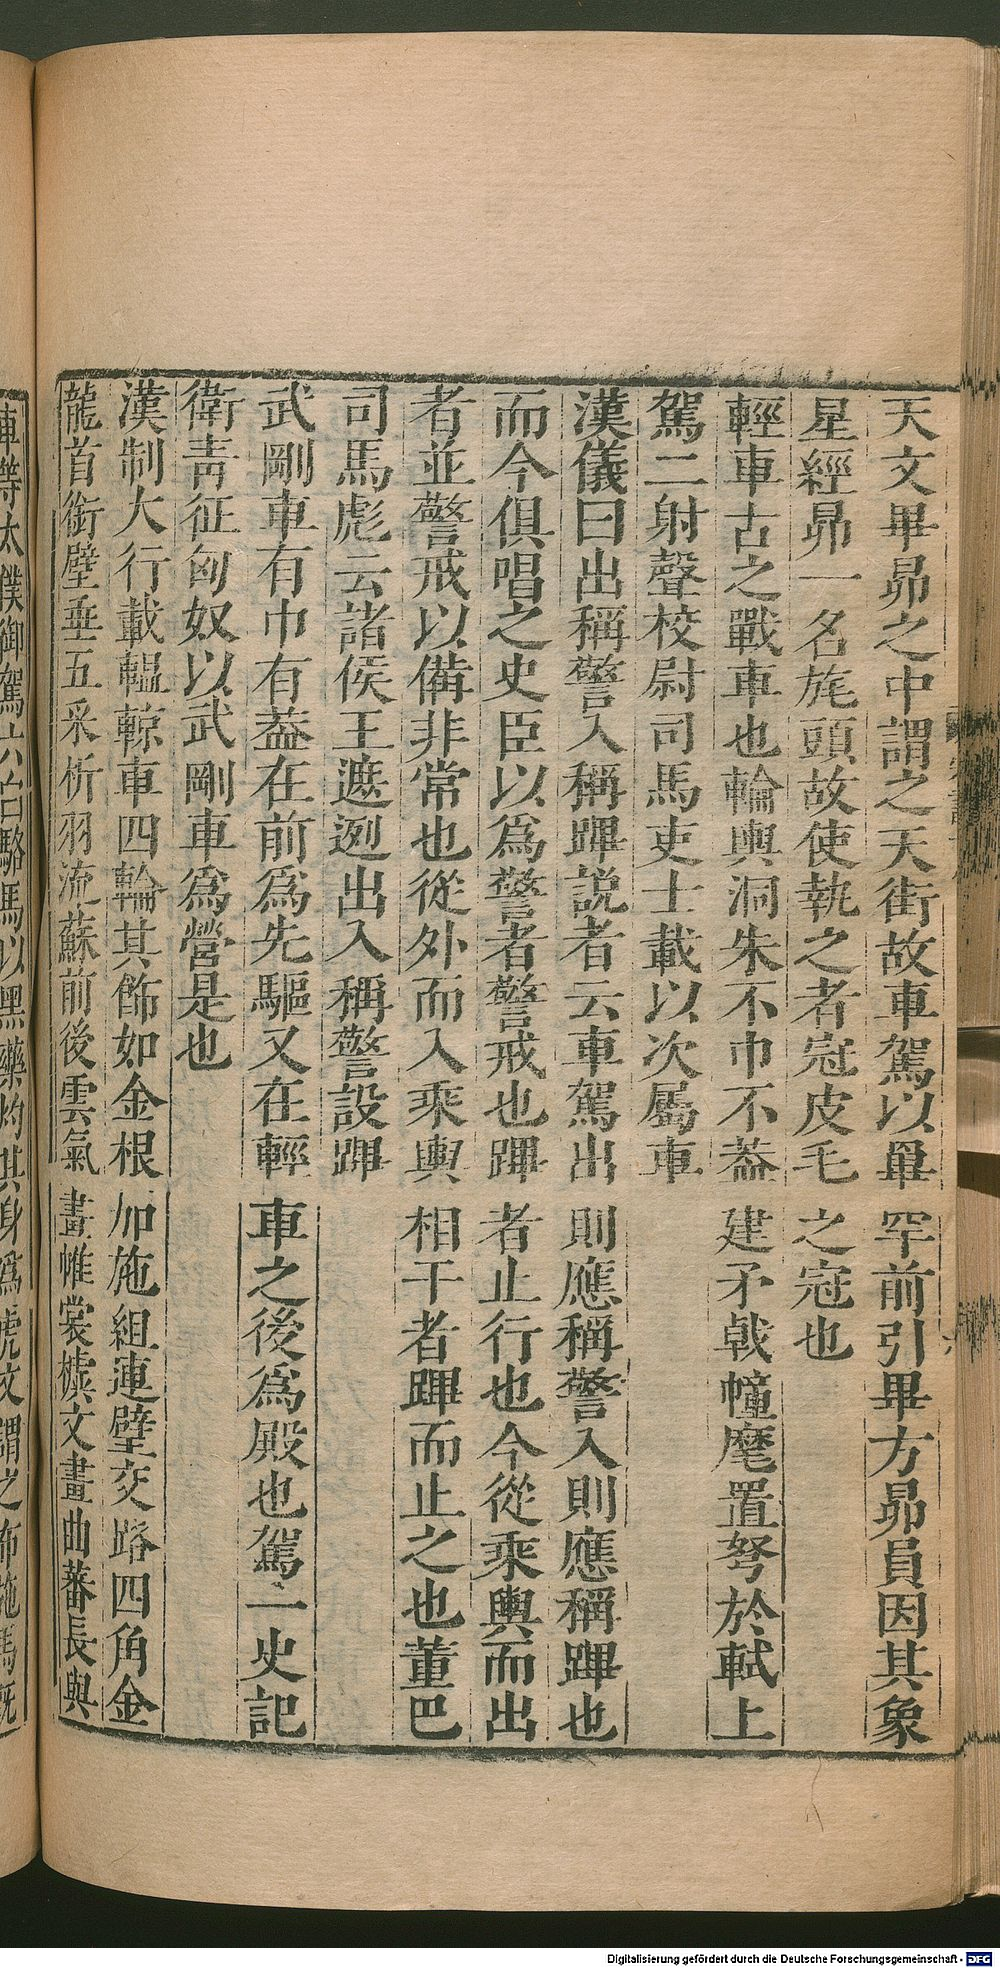 天文畢昴之中謂之天街故車駕以罼罕前引畢方昴員因其象
星經昴一名旄頭故使執之者冠皮毛之冠也
輕車古之戰車也輪輿洞朱不巾不蓋建矛戟幢麾置弩於軾上
駕二射聲校尉司馬吏士載以次屬車
漢儀曰出稱警入稱蹕説者云車駕出則應稱警入則應稱蹕也
而今俱唱之史臣以爲警者警戒也蹕者止行也今從乘輿而出
者並警戒以備非常也從外而入乘輿相干者蹕而止之也董巴
司馬彪云諸侯王遮迾出入稱警設蹕
武剛車有巾有蓋在前爲先驅又在輕車之後爲殿也駕一史記
衛青征匈奴以武剛車爲營是也
漢制大行載轀輬車四輪其飾如金根加施組連璧交路四角金
龍首銜璧垂五采析羽流蘇前後雲氣畫帷裳檴文畫曲蕃長與
車等太僕御駕六白駱馬以黑藥灼其身爲虎文謂之布施馬既
Digitalisierung gefördert durch die Deutsche Forschungsgemeinschaft - DFG